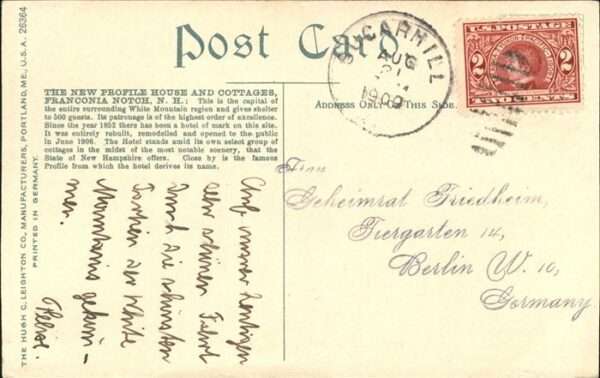 Post Card
SUGARHILL
AUG
21
1909
U.S. POSTAGE
2 2
TWO CENTS
THE NEW PROFILE HOUSE AND COTTAGES,
FRANCONIA NOTCH, N. H.: This is the capital of
the entire surrounding White Mountain region and gives shelter
to 500 guests. Its patronage is of the highest order of excellence.
Since the year 1852 there has been a hotel of mark on this site.
It was entirely rebuilt, remodelled and opened to the public
in June 1906. The Hotel stands amid its own select group of
cottages in the midst of the most notable scenery, that the
State of New Hampshire offers. Close by is the famous
Profile from which the hotel derives its name.
ADDRESS ONLY ON THIS SIDE.
THE HUGH C. LEIGHTON CO., MANUFACTURERS, PORTLAND, ME., U.S.A. 26364
PRINTED IN GERMANY.
Auf unserer heutigen
schönen Fahrt
durch die schönsten
der White
Mountains
men.
Frau
Geheimrat Friedheim,
Tiergarten 14,
Berlin W. 10,
Germany